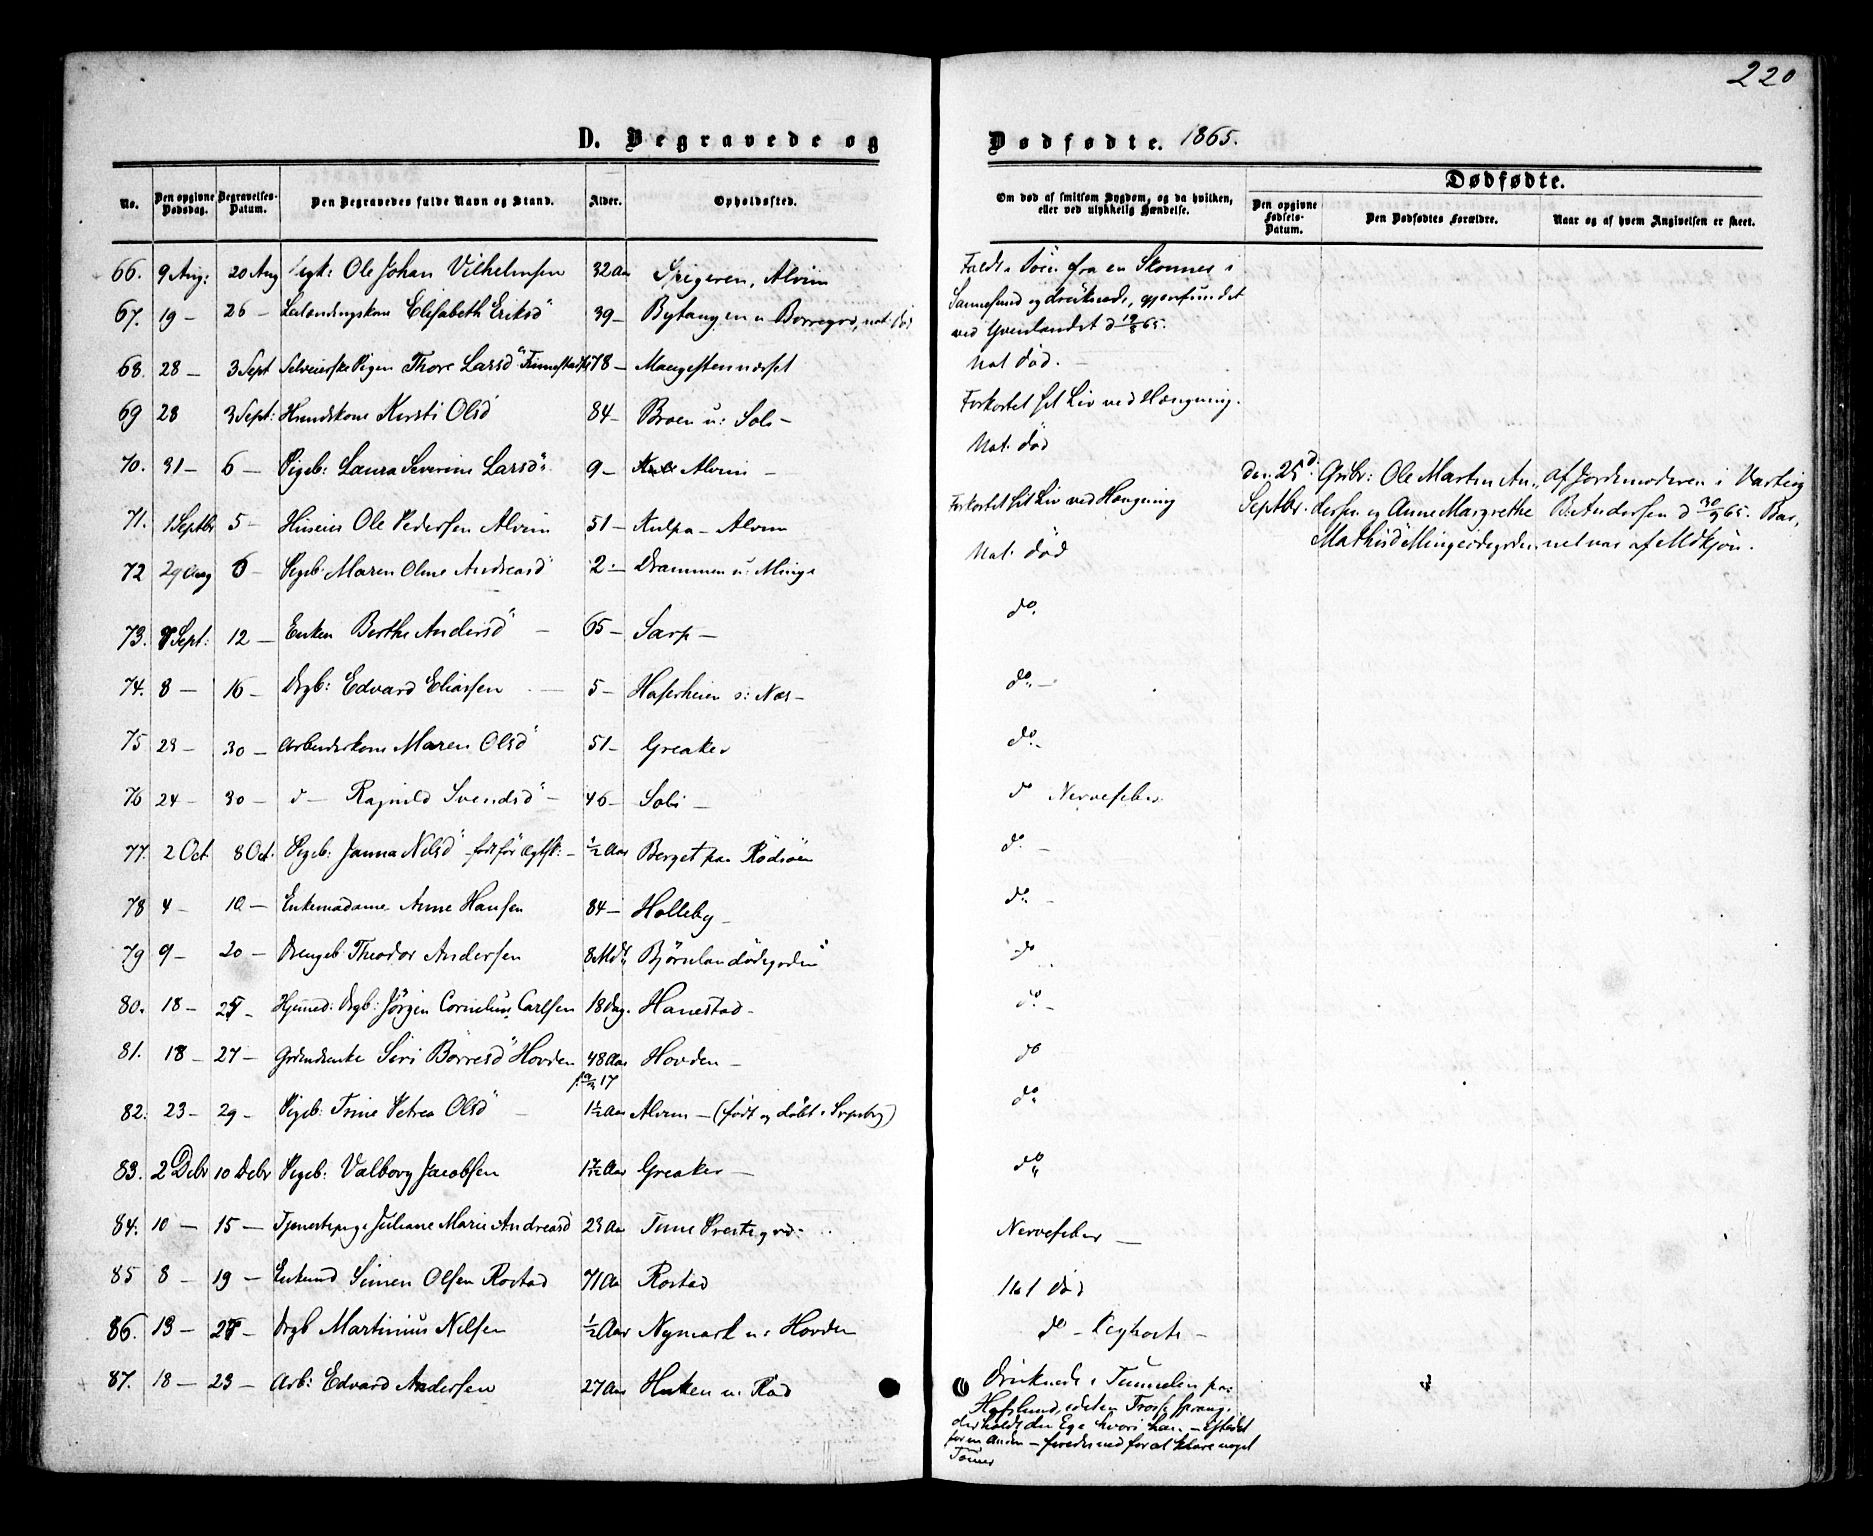 220
D. Begravede og Dødfødte. 1865.
No. Den opgivne Dødsdag. Begravelses-Datum. Den Begravedes fulde Navn og Stand. Alder. Opholdssted.
Om død af smitsom Sygdom, og da hvilken, eller ved ulykkelig Hændelse.
Dødfødte.
Den opgivne Fødsels-Datum. Den Dødfødtes Forældre. Naar og af hvem Angivelsen er skeet.
66. 9 Aug: 20 Aug Ole Johan Vilhelmsen 32 Aar Spigeren, Alvim
67. 19 — 26 — Elisabeth Eriksd 39 — Bytangen u Borregrd, nat. død
68. 28 — 3 Sept Pigen Thore Larsd 78 — Mangestennæset
69 28 3 Sept: Kersti Olsd 84 — Broen u: Soli —
70. 31 — 6 — Pigeb: Laura Severine Larsd: 9 — Alvim —
71. 1 Septbr 5 — Huseier Ole Pedersen Alvim 51 — Kulpa — Alvim
72 29 Aug 6 — Pigeb: Maren Oline Andreasd 2 — Drammen u: Minge
73. 8 Sept: 12 — Enken Berthe Andersd — 65 — Sarp —
74. 8 — 16 — Drgb: Edvard Eliassen — 5 — Haserheien u: Næs —
75 23 — 30 — Arbeiderkone Maren Olsd 51 — Greaker
76 24 — 30 — d — Ragnild Svendsd — 46 — Soli —
77. 2 Oct 8 Oct. Pigeb: Janna Nilsd født før Ægtsk: — ½ Aar Berget paa Rødsøen
78 4 — 10 — Enkemadame Anne Hansen 84 — Holleby —
79 9 — 20 — Drengeb Theodor Andersen 8 Mdr Bjørnlandødegrden
80. 18 — 25 — Hjemmed: Drgb: Jörgen Cornelius Carlsen 18 Dag. Hanestad —
81. 18 — 27 — Grdmdsenke Siri Börresd Hovden 48 Aar Hovden —
82. 23 — 29 — Pigeb: Trine Petrea Olsd — 1½ Aar Alvim — (født og døbt i Srpsbrg)
83. 2 Debr 10 Debr Pigeb: Valborg Jacobsen 1 7/12 Aar Greaker —
84. 10 — 15 — Tjenestepige Juliane Marie Andreasd 23 Aar Tune Prestegrd —
85 8 — 19 — Enkemd Simen Olsen Rostad 71 Aar Rostad
86. 13 — 28 — Drgb Martinius Nilsen ½ Aar Nymark u: Hovden
87. 18 — 23 — Arb: Edvard Andersen 27 Aar Haken u: Rød
Faldt i Søen fra en Skonnert i
Sannesund og druknede, gjenfundet
ved d 19/8 65.
Nat død. —
Forkortet sit Liv ved Hængning.
Nat. død
Forkortet sit Liv ved Hængning
Nat. død
do.
do. —
do. —
do Nervefeber
do. —
do. —
do
do. —
do
do.
do.
Nervefeber —
Nat død
do — Kighoste —
Druknede i Tunnelen paa
Hafslund, idet en Trosse sprang,
der holdt den Ege hvori han —
for en anden — foredes ned for at klare noget
Tømmer
den 25d Septbr. Grdbr: Ole Martin Andersen og Anne Margrethe Mathisd Mingeødegrden
af Jordemoderen i Varteig
B. Andersen d 30/9 65. Barnet var af Mdkjøn.